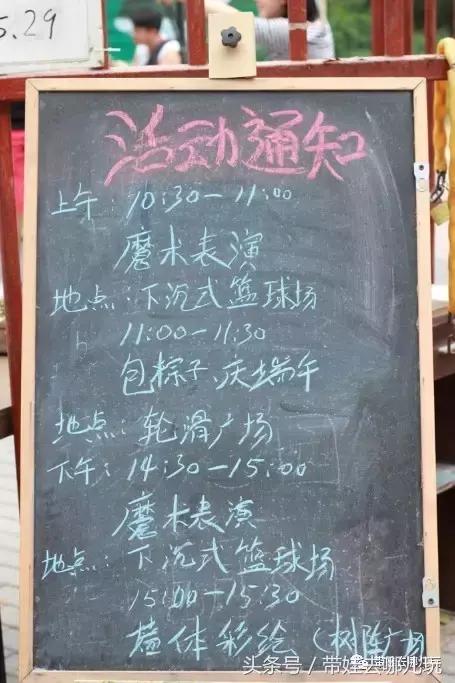 5.29
活动通知
上午：10:30－11:00
魔术表演
地点：下沉式篮球场
11:00－11:30
包粽子,庆端午
地点：轮滑广场
下午：14:30－15:00
魔术表演
地点：下沉式篮球场
15:00－15:30
墙体彩绘（树阵广场
头条号 / 带娃去哪儿玩